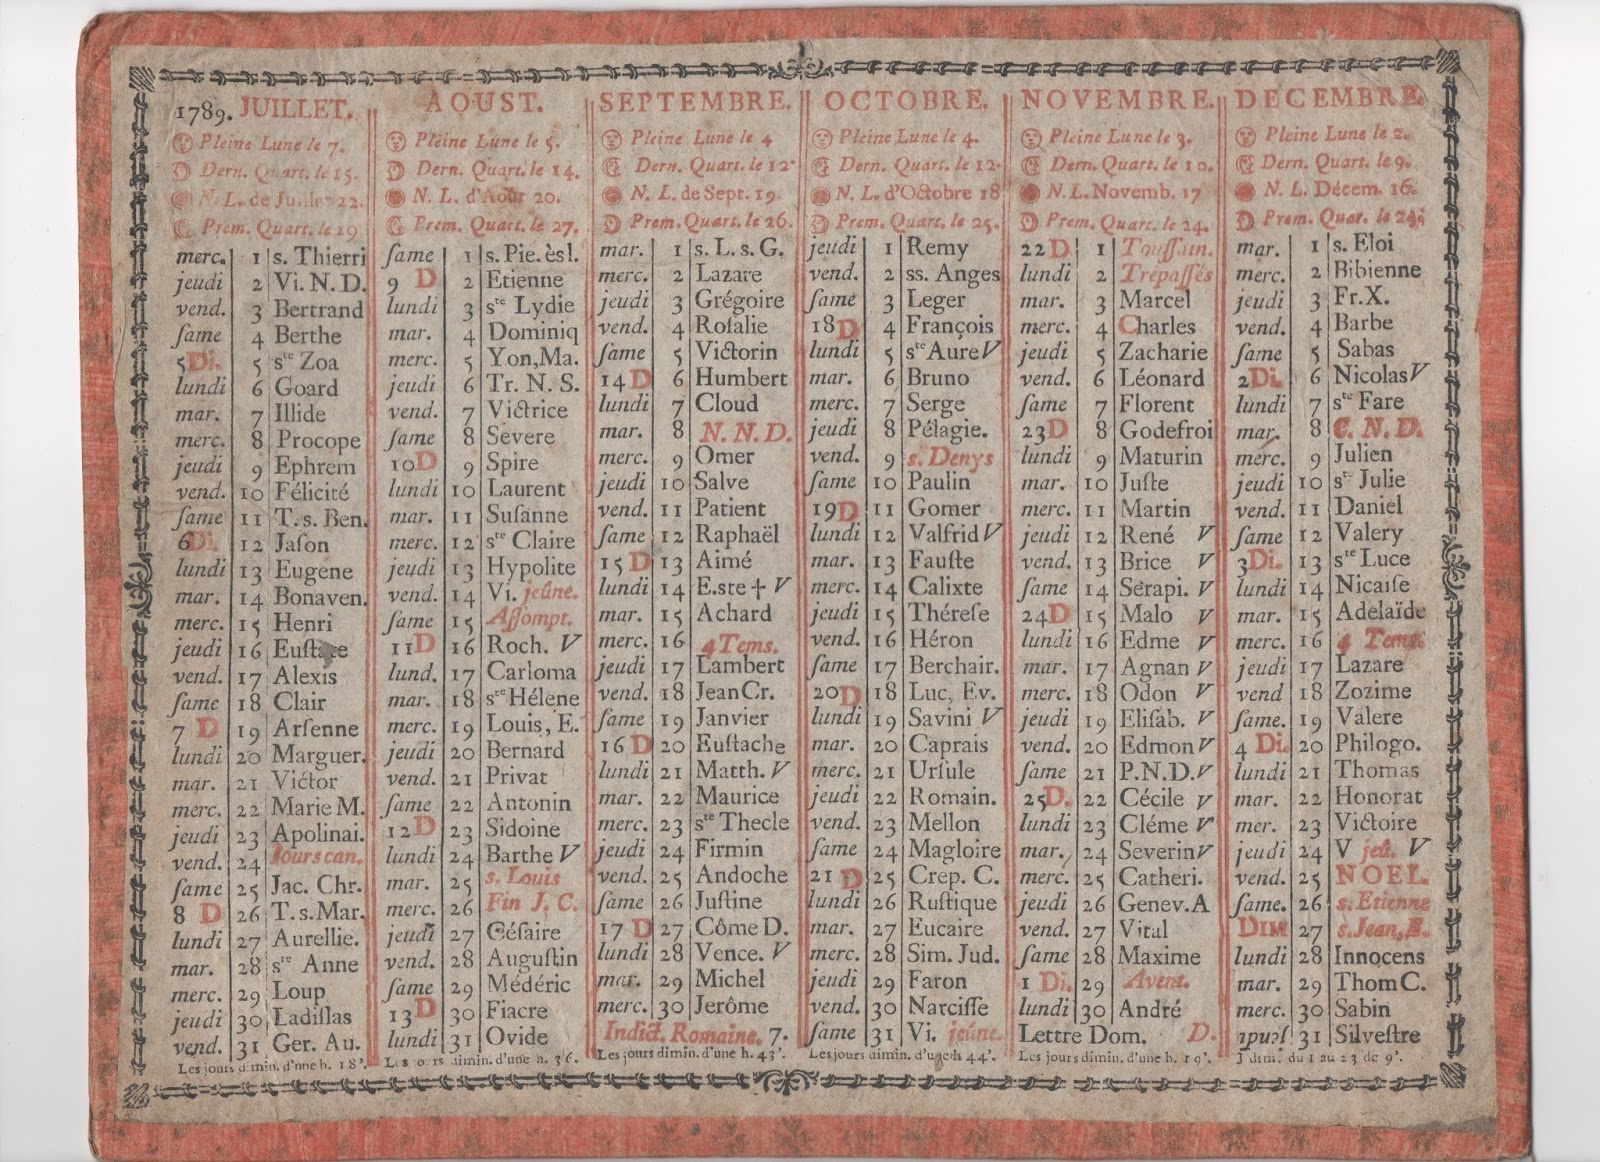 1789. JUILLET.
Pleine Lune le 7.
Dern. Quart. le 15.
N. L. de Juillet 22.
Prem. Quart. le 29
merc. 1 s. Thierri
jeudi 2 Vi. N. D.
vend. 3 Bertrand
ſame 4 Berthe
5 Di. 5 ste Zoa
lundi 6 Goard
mar. 7 Illide
merc. 8 Procope
jeudi 9 Ephrem
vend. 10 Félicité
ſame 11 T. s. Ben.
6 Di. 12 Jaſon
lundi 13 Eugene
mar. 14 Bonaven.
merc. 15 Henri
jeudi 16 Euſtate
vend. 17 Alexis
ſame 18 Clair
7 D 19 Arſenne
lundi 20 Marguer.
mar. 21 Victor
merc. 22 Marie M.
jeudi 23 Apolinai.
vend. 24 Jours can.
ſame 25 Jac. Chr.
8 D 26 T. s. Mar.
lundi 27 Aurellie.
mar. 28 ste Anne
merc. 29 Loup
jeudi 30 Ladiſlas
vend. 31 Ger. Au.
Les jours dimin. d'une h. 18'.
AOUST.
Pleine Lune le 5.
Dern. Quart. le 14.
N. L. d'Août 20.
Prem. Quart. le 27.
ſame 1 s. Pie. èsl.
9 D 2 Etienne
lundi 3 ste Lydie
mar. 4 Dominiq
merc. 5 Yon, Ma.
jeudi 6 Tr. N. S.
vend. 7 Victrice
ſame 8 Severe
10 D 9 Spire
lundi 10 Laurent
mar. 11 Suſanne
merc. 12 ste Claire
jeudi 13 Hypolite
vend. 14 Vi. jeûne.
ſame 15 Aſſompt.
11 D 16 Roch. V
lund. 17 Carloma
mar. 18 ste Hélene
merc. 19 Louis, E.
jeudi 20 Bernard
vend. 21 Privat
ſame 22 Antonin
12 D 23 Sidoine
lundi 24 Barthe V
mar. 25 s. Louis
merc. 26 Fin J. C.
jeudi 27 Céſaire
vend. 28 Auguſtin
ſame 29 Médéric
13 D 30 Fiacre
lundi 31 Ovide
Les jours dimin. d'une h. 36.
SEPTEMBRE.
Pleine Lune le 4
Dern. Quart. le 12.
N. L. de Sept. 19.
Prem. Quart. le 26.
mar. 1 s. L. s. G.
merc. 2 Lazare
jeudi 3 Grégoire
vend. 4 Roſalie
ſame 5 Victorin
14 D 6 Humbert
lundi 7 Cloud
mar. 8 N. N. D.
merc. 9 Omer
jeudi 10 Salve
vend. 11 Patient
ſame 12 Raphaël
15 D 13 Aimé
lundi 14 E. ste † V
mar. 15 Achard
merc. 16 4 Tems.
jeudi 17 Lambert
vend. 18 Jean Cr.
ſame 19 Janvier
16 D 20 Euſtache
lundi 21 Matth. V
mar. 22 Maurice
merc. 23 ste Thecle
jeudi 24 Firmin
vend. 25 Andoche
ſame 26 Juſtine
17 D 27 Côme D.
lundi 28 Vence. V
mar. 29 Michel
merc. 30 Jerôme
Indict. Romaine. 7.
Les jours dimin. d'une h. 43'.
OCTOBRE.
Pleine Lune le 4.
Dern. Quart. le 12.
N. L. d'Octobre 18
Prem. Quart. le 25.
jeudi 1 Remy
vend. 2 ss. Anges
ſame 3 Leger
18 D 4 François
lundi 5 ste Aure V
mar. 6 Bruno
merc. 7 Serge
jeudi 8 Pélagie.
vend. 9 s. Denys
ſame 10 Paulin
19 D 11 Gomer
lundi 12 Valfrid V
mar. 13 Fauſte
merc. 14 Calixte
jeudi 15 Théreſe
vend. 16 Héron
ſame 17 Berchair.
20 D 18 Luc, Ev.
lundi 19 Savini V
mar. 20 Caprais
merc. 21 Urſule
jeudi 22 Romain.
vend. 23 Mellon
ſame 24 Magloire
21 D 25 Crep. C.
lundi 26 Ruſtique
mar. 27 Eucaire
merc. 28 Sim. Jud.
jeudi 29 Faron
vend. 30 Narciſſe
ſame 31 Vi. jeûne.
Les jours dimin. d'une h 44'.
NOVEMBRE.
Pleine Lune le 3.
Dern. Quart. le 10.
N. L. Novemb. 17
Prem. Quart. le 24.
22 D 1 Touſſain.
lundi 2 Trépaſſés
mar. 3 Marcel
merc. 4 Charles
jeudi 5 Zacharie
vend. 6 Léonard
ſame 7 Florent
23 D 8 Godefroi
lundi 9 Maturin
mar. 10 Juſte
merc. 11 Martin
jeudi 12 René V
vend. 13 Brice V
ſame 14 Sérapi. V
24 D 15 Malo V
lundi 16 Edme V
mar. 17 Agnan V
merc. 18 Odon V
jeudi 19 Eliſab. V
vend. 20 Edmon V
ſame 21 P. N. D. V
25 D. 22 Cécile V
lundi 23 Cléme V
mar. 24 Severin V
merc. 25 Catheri.
jeudi 26 Genev. A
vend. 27 Vital
ſame 28 Maxime
1 Di. 29 Avent.
lundi 30 André
Lettre Dom. D.
Les jours dimin. d'une h. 19'.
DECEMBRE.
Pleine Lune le 2.
Dern. Quart. le 9.
N. L. Décem. 16.
Prem. Quart. le 24.
mar. 1 s. Eloi
merc. 2 Bibienne
jeudi 3 Fr. X.
vend. 4 Barbe
ſame 5 Sabas
2 Di. 6 Nicolas V
lundi 7 ste Fare
mar. 8 C. N. D.
merc. 9 Julien
jeudi 10 ste Julie
vend. 11 Daniel
ſame 12 Valery
3 Di. 13 ste Luce
lundi 14 Nicaiſe
mar. 15 Adelaïde
merc. 16 4 Tems.
jeudi 17 Lazare
vend 18 Zozime
ſame. 19 Valere
4 Di. 20 Philogo.
lundi 21 Thomas
mar. 22 Honorat
mer. 23 Victoire
jeudi 24 V jeû. V
vend. 25 NOEL.
ſame. 26 s. Etienne
DIM 27 s. Jean, E.
lundi 28 Innocens
mar. 29 Thom C.
merc. 30 Sabin
31 Silveſtre
J dim. du 1 au 23 de 9'.